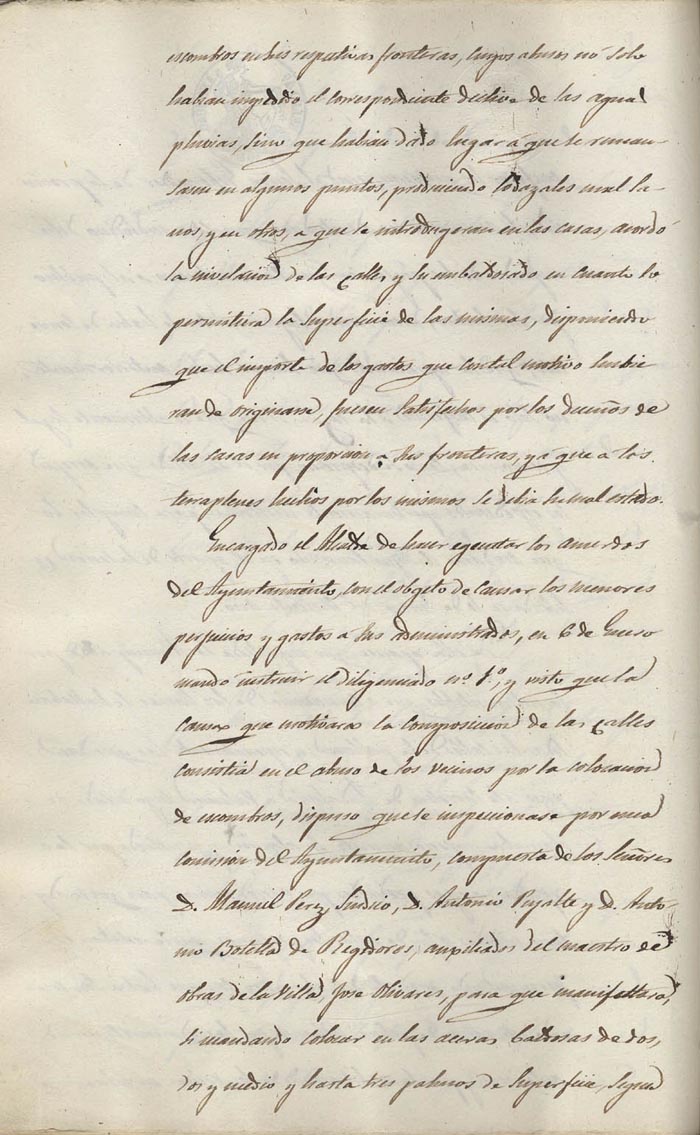 escombros en sus respectivas fronteras, cuyos abusos nó solo
habian impedido el correspondiente declive de las aguas
pluvias, sino que habian dado lugar á que se reman-
saran en algunos puntos, produciendo lodazales mal sa-
nos, y en otros, a que se introdugeran en las casas, acordó
la nivelacion de las calles y su embaldosado en cuanto lo
permitiera la superficie de las mismas, disponiendo
que el importe de los gastos que con tal motivo hubie
ran de originarse, fuesen satisfechos por los dueños de
las casas en proporcion a sus fronteras, ya que a los
terraplenes hechos por los mismos se debia su mal estado.
Encargado el Alcalde de hacer egecutar los acuerdos
del Ayuntamiento, con el obgeto de causar los menores
perjuicios y gastos á sus administrados, en 6 de Enero
mandó instruir el diligenciado nº. 1º, y visto que la
causa que motivara la composicion de las calles
consistia en el abuso de los vecinos por la colocacion
de escombros, dispuso que se inspeccionase por una
comision del Ayuntamiento, compuesta de los Señores
D. Manuel Perez, Sindico, D. Antonio Pujalte y D. Anto-
nio Botella de Regidores, aucsiliados del maestro de
obras de la Villa, Jose Olivares, para que manifestara,
si mandando colocar en las aceras baldosas de dos,
dos y medio y hasta tres palmos de superficie, segun